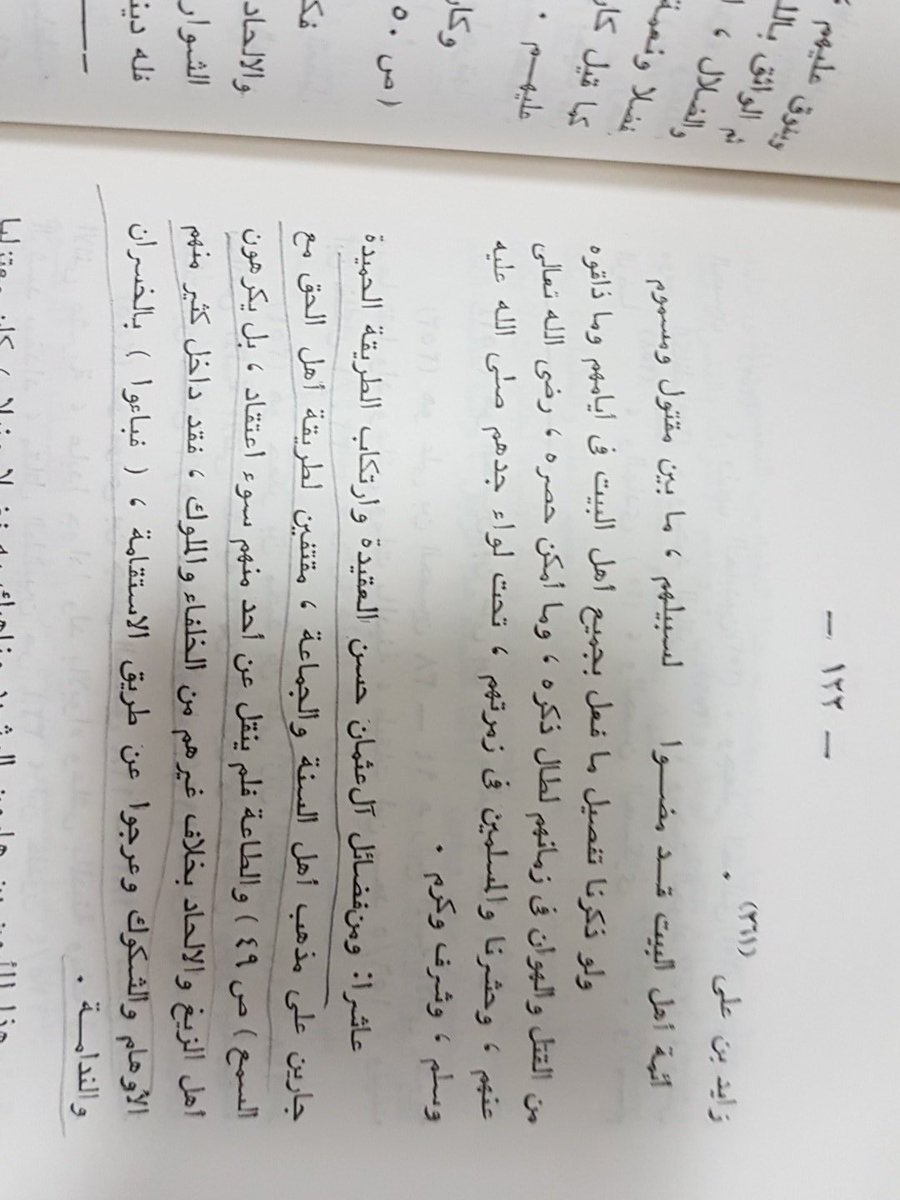 — ١٢٢ —
زايد بن على (٣٦١) .
ائمة أهل البيت قد مضوا لسبيلهم ، ما بين مقتول ومسموم
ولو ذكرنا تفصيل ما فعل بجميع أهل البيت فى أيامهم وما ذاقوه
من القتل والهوان فى زمانهم لطال ذكره ، وما أمكن حصره ، رضى الله تعالى
عنهم ، وحشرنا والمسلمين فى زمرتهم ، تحت لواء جدهم صلى الله عليه
وسلم ، وشرف وكرم .
عاشرا: ومن فضائل آل عثمان حسن العقيدة وارتكاب الطريقة الحميدة
جارين على مذهب أهل السنة والجماعة ، مقتفين لطريقة أهل الحق مع
السمع ( ص ٤٩ ) والطاعة فلم ينقل عن أحد منهم سوء اعتقاد ، بل يكرهون
اهل الزيغ والالحاد بخلاف غيرهم من الخلفاء والملوك ، فقد داخل كثير منهم
الأوهام والشكوك وعرجوا عن طريق الاستقامة ، ( فباءوا ) بالخسران
والندامة .
ثم الواثق
والضلال ،
فضلا ونعمة
كما قيل
عليهم .
( ص ٥٠
والالحاد
فله